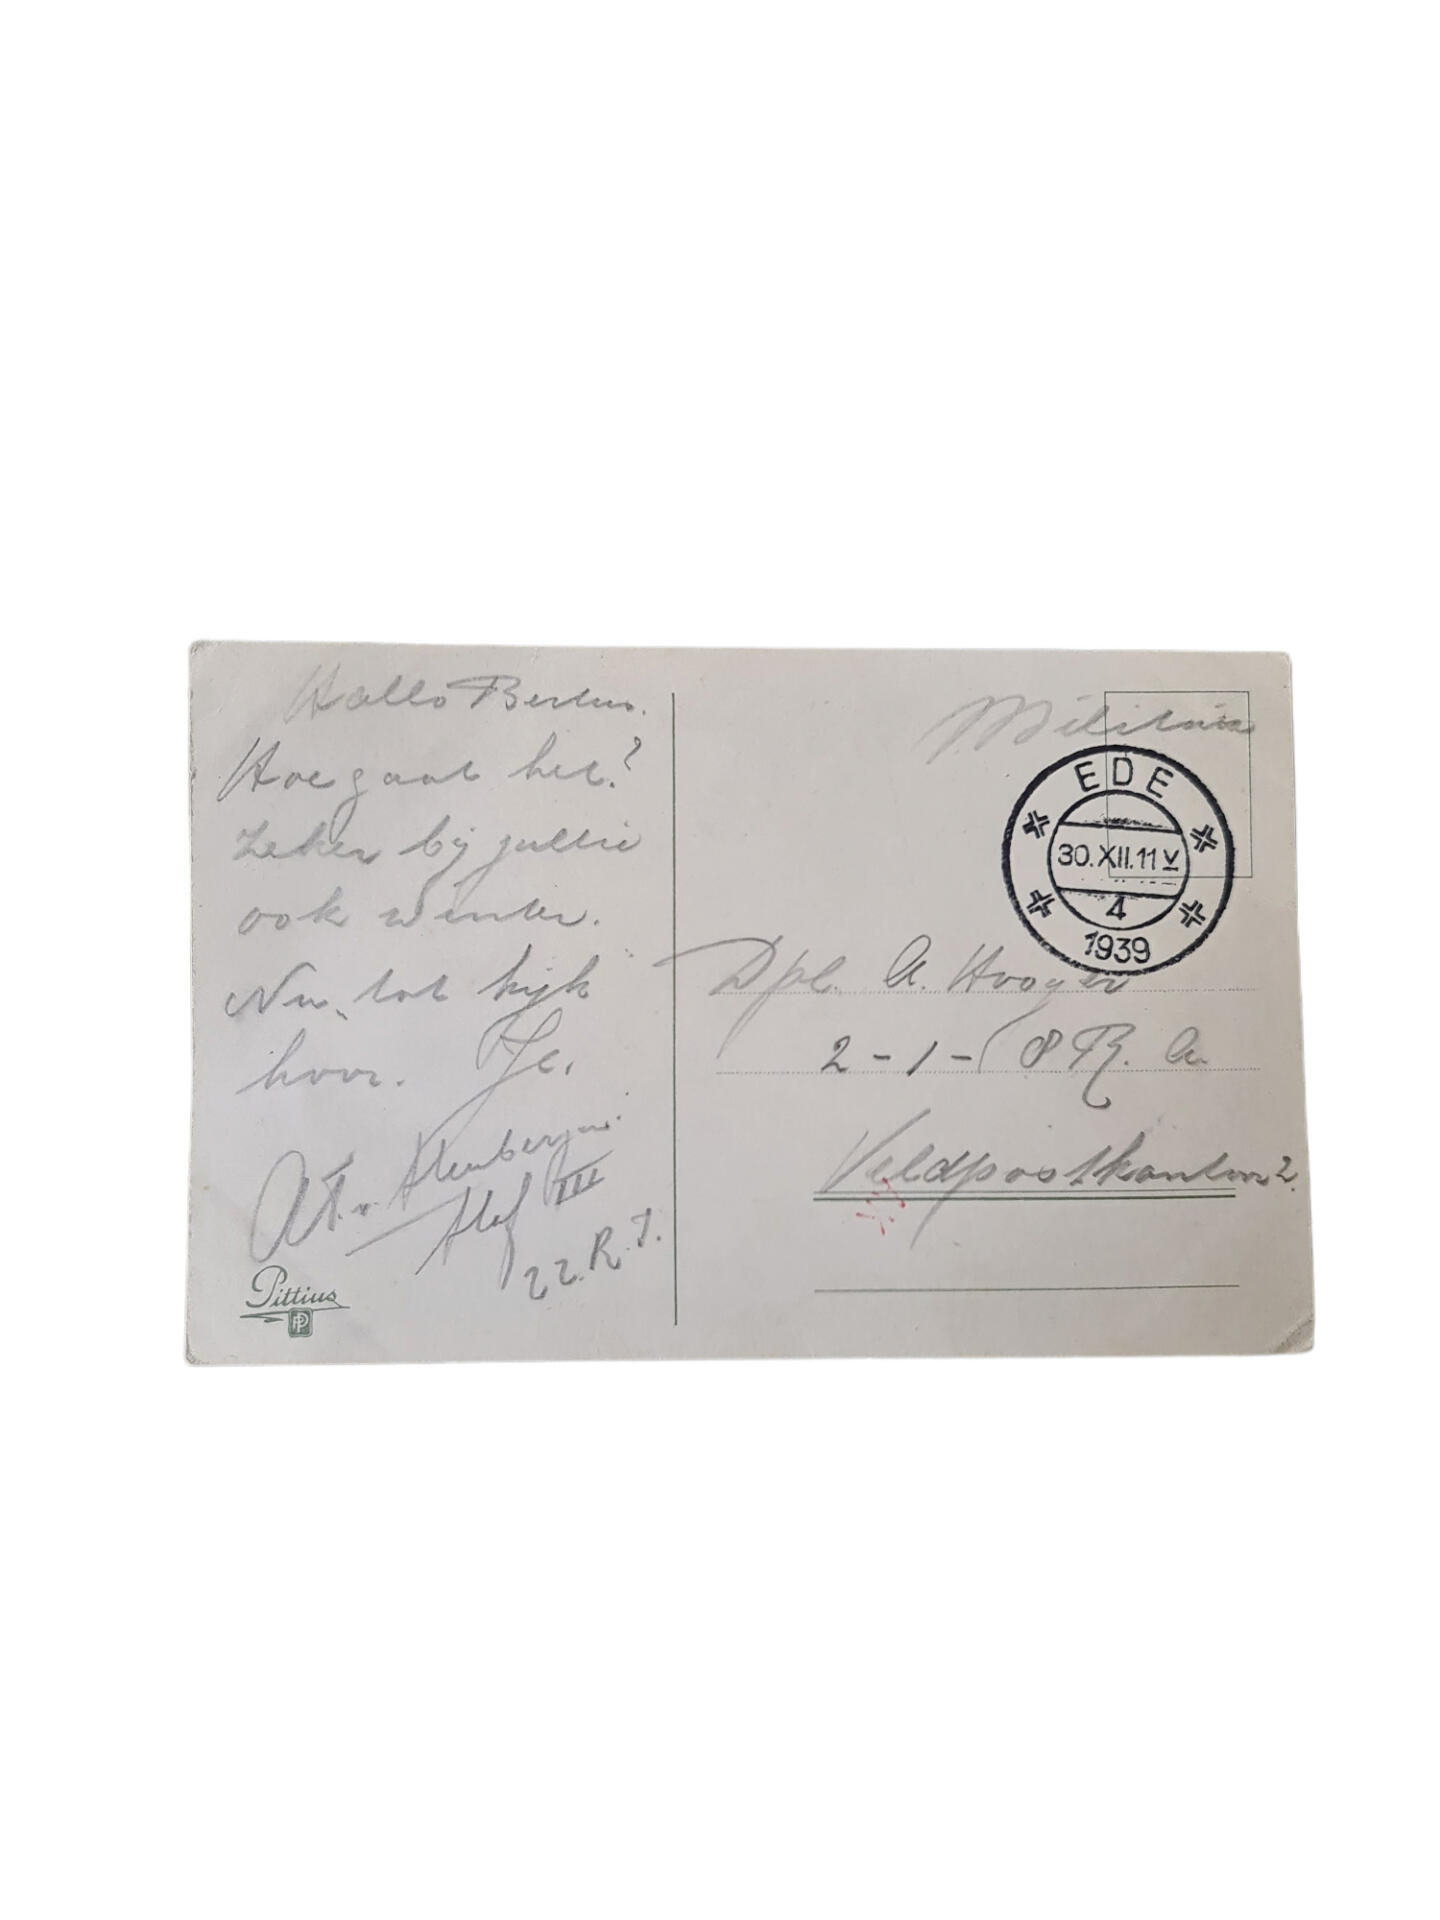 Hallo Bertus.
Hoe gaat het?
Zeker bij jullie
ook winter.
Nu, tot kijk
hoor.
Staf III
22. R. I.
Pittius
PP
Militair
EDE
30.XII.11 V
4
1939
Dpl. A. Hooger
2 - 1 - 8 R. A.
Veldpostkantoor 2.